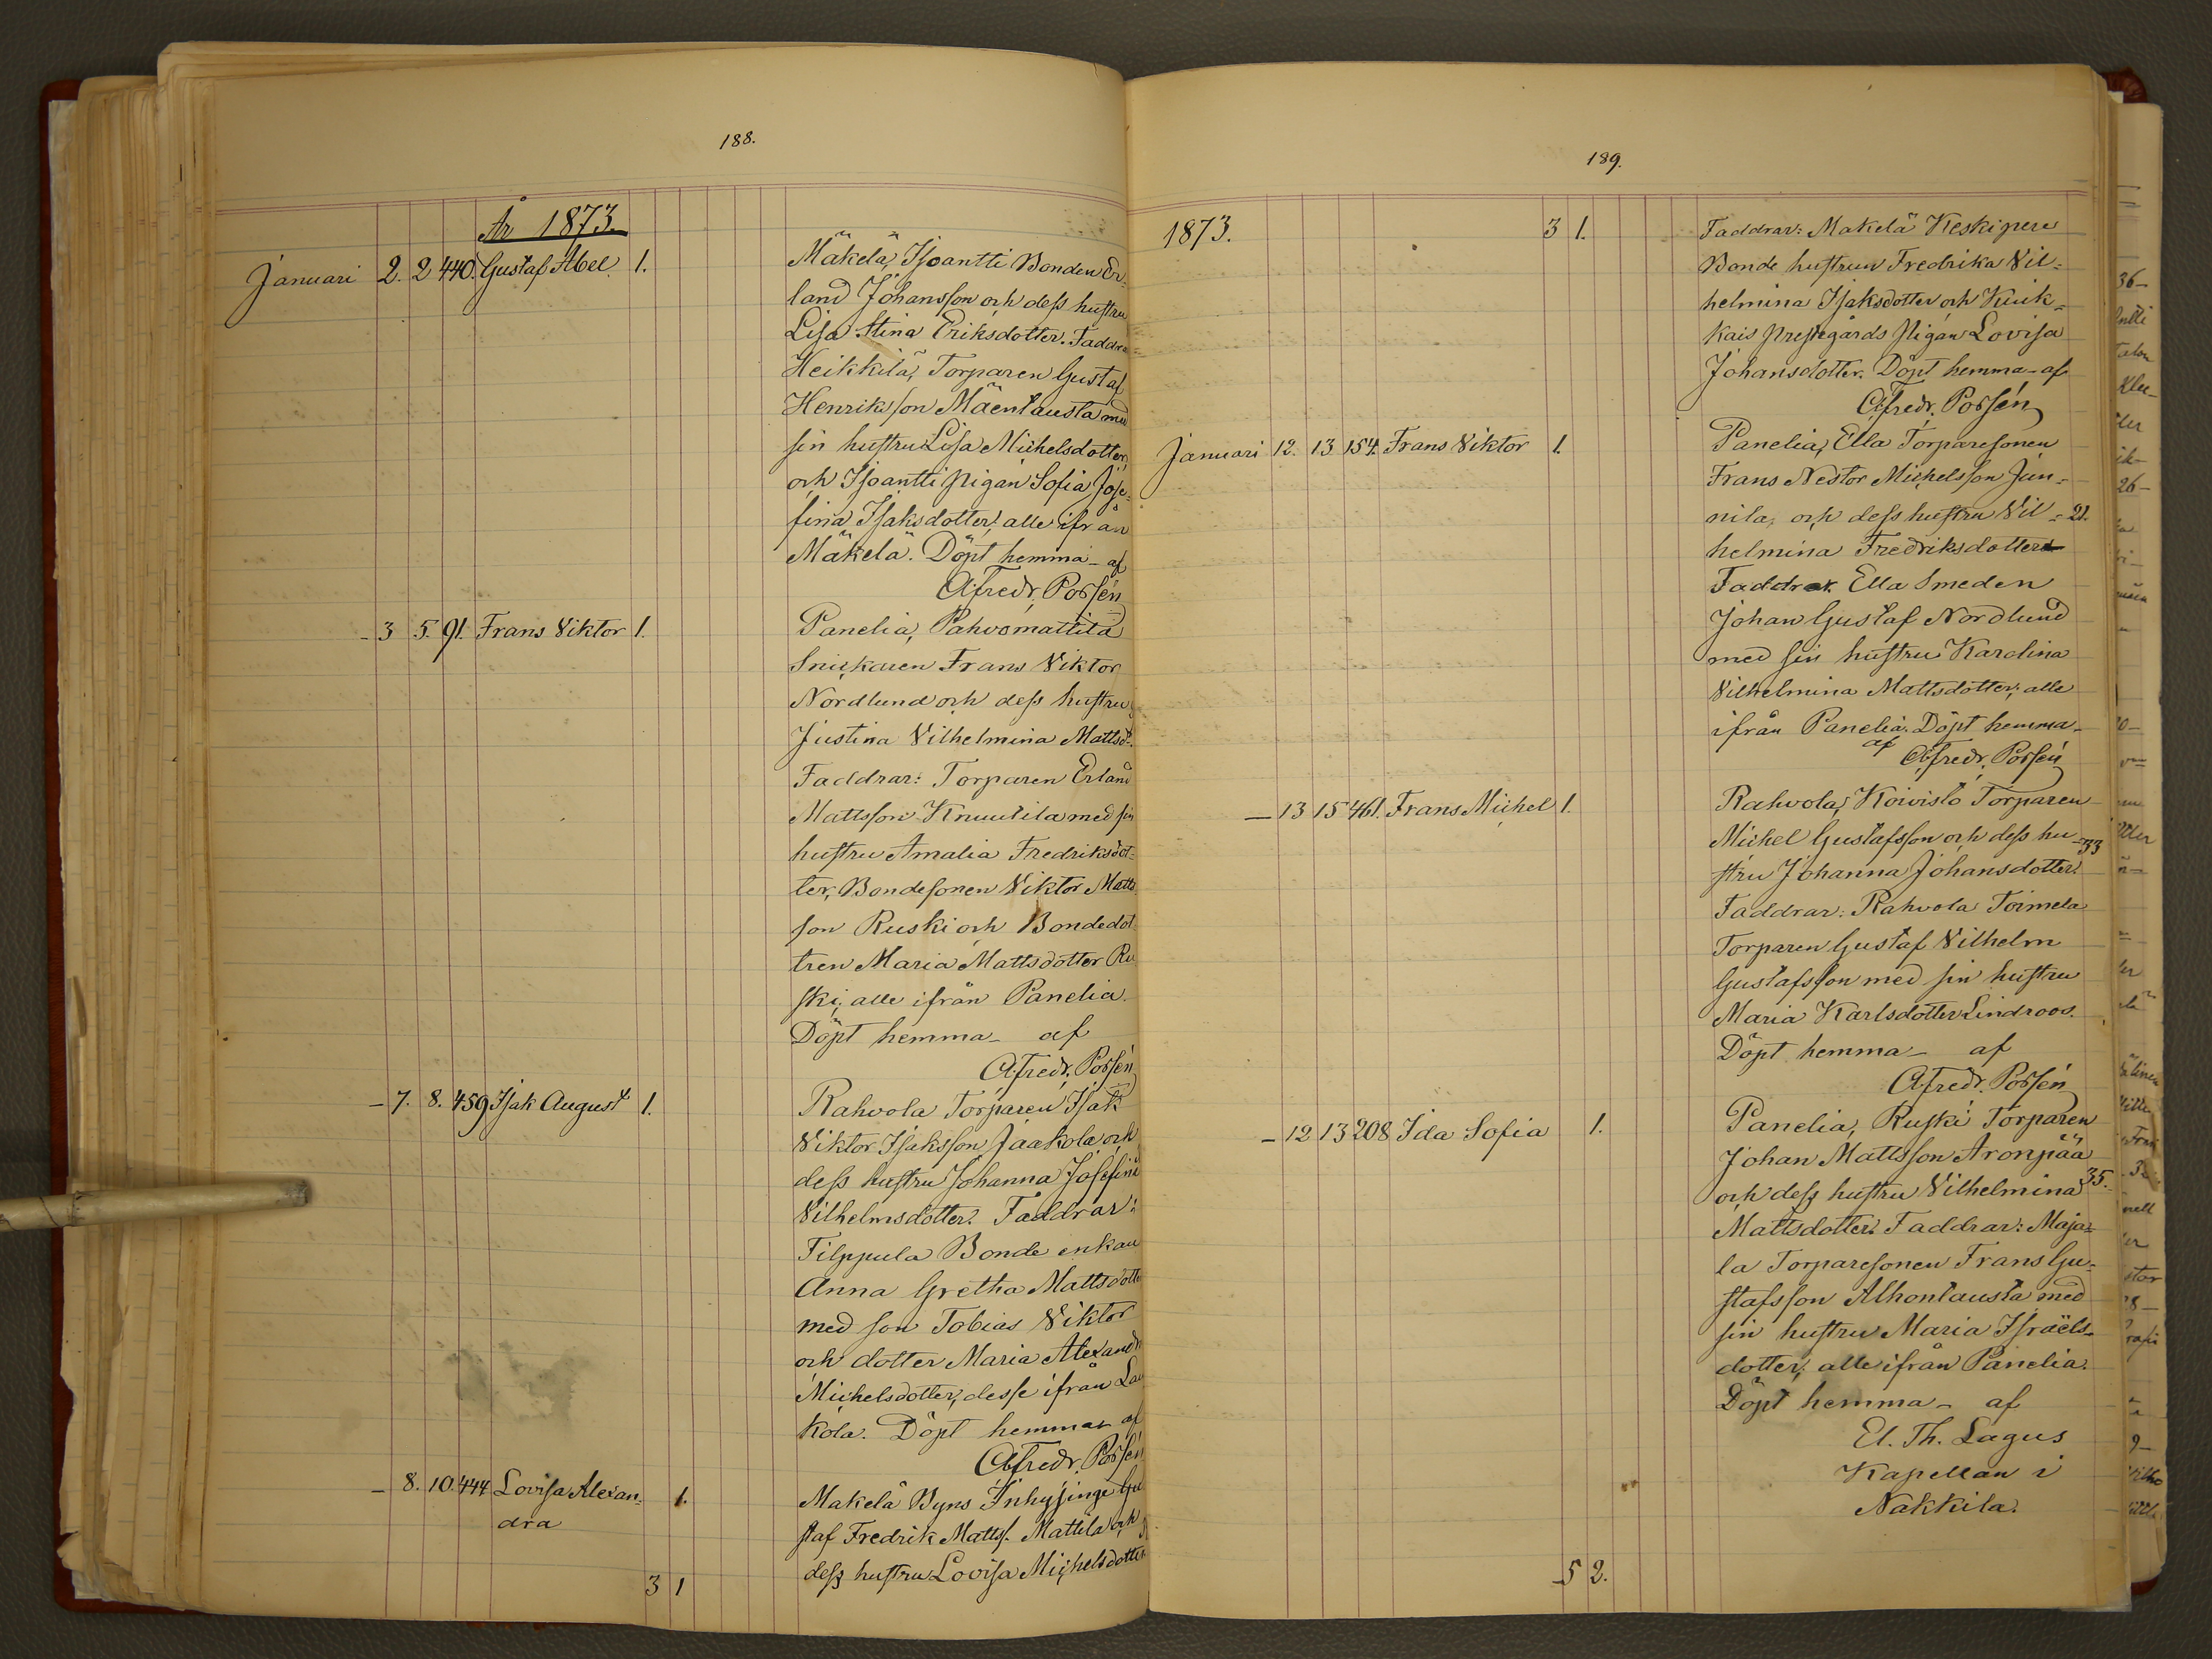 188.
År 1873.
Januari 2. 2 440. Gustaf Abel 1. Mäkelä, Isoantti Bonden Er-
land Johansson och dess hustru
Lisa Stina Eriksdotter. Faddrar=
Heikkilä, Torparen Gustaf
Henriksson Mäentausta med
sin hustru Lisa Michelsdotter,
och Isoantti pigan Sofia Jose-
fina Isaksdotter, alle ifrån
Mäkelä. Döpt hemma - af
Afredr. Porsén
- 3 5. 91. Frans Viktor 1. Panelia, Pahvomattila
Snickaren Frans Viktor
Nordlund och dess hustru
Justina Vilhelmina Mattsd.
Faddrar: Torparen Erland
Mattsson Knuutila med sin
hustru Amalia Fredriksdot-
ter, Bondesonen Viktor Matts
son Ruski och Bondedot-
tren Maria Mattsdotter Ru
ski, alle ifrån Panelia.
Döpt hemma - af
Afredr. Porsén
- 7. 8. 459 Isak August 1. Rahvola Torparen Isak
Viktor Isaksson Jaakola och
dess hustru Johanna Josefina
Vilhelmsdotter. Faddrar:
Filppula Bonde enkan
Anna Gretha Mattsdotter
med son Tobias Viktor
och dotter Maria Alexandr
Michelsdotter, desse ifrån Lau
kola. Döpt hemma - af
Afredr. Porsén
- 8. 10. 444 Lovisa Alexan- 1. Makelä Byns Inhysinge Gu
dra staf Fredrik Matts. Mattila och
dess hustru Lovisa Michelsdotter.
3 1
189.
1873. 3 1. Faddrar: Makelä Keskipere
Bonde hustrun Fredrika Vil-
helmina Isaksdotter och Kiuk-
kais Prestegårds Pigan Lovisa
Johansdotter. Döpt hemma - af
Afredr. Porsén
Januari 12. 13 154. Frans Viktor 1. Panelia, Ella Torparesonen
Frans Nestor Michelsson Jun-
nila, och dess hustru Vil- 21.
helmina Fredriksdotter
Faddrar Ella Smeden
Johan Gustaf Nordlund
med sin hustru Karolina
Vilhelmina Mattsdotter, alle
ifrån Panelia. Döpt hemma -
af Afredr. Porsén
- 13 15 461. Frans Michel 1. Rahvola, Koivisto Torparen
Michel Gustafsson och dess hu- 33
stru Johanna Johansdotter.
Faddrar: Rahvola Toimela
Torparen Gustaf Vilhelm
Gustafsson med sin hustru
Maria Karlsdotter Lindroos.
Döpt hemma - af
Afredr. Porsén
- 12 13 208 Ida Sofia 1. Panelia, Ruski Torparen
Johan Mattsson Aronpää
och dess hustru Vilhelmina 35.
Mattsdotter. Faddrar: Maja-
la Torparesonen Frans Gu-
stafsson Alhontausta med
sin hustru Maria Israëls-
dotter, alle ifrån Panelia.
Döpt hemma - af
El. Th. Lagus
Kapellan i
Nakkila.
5 2.